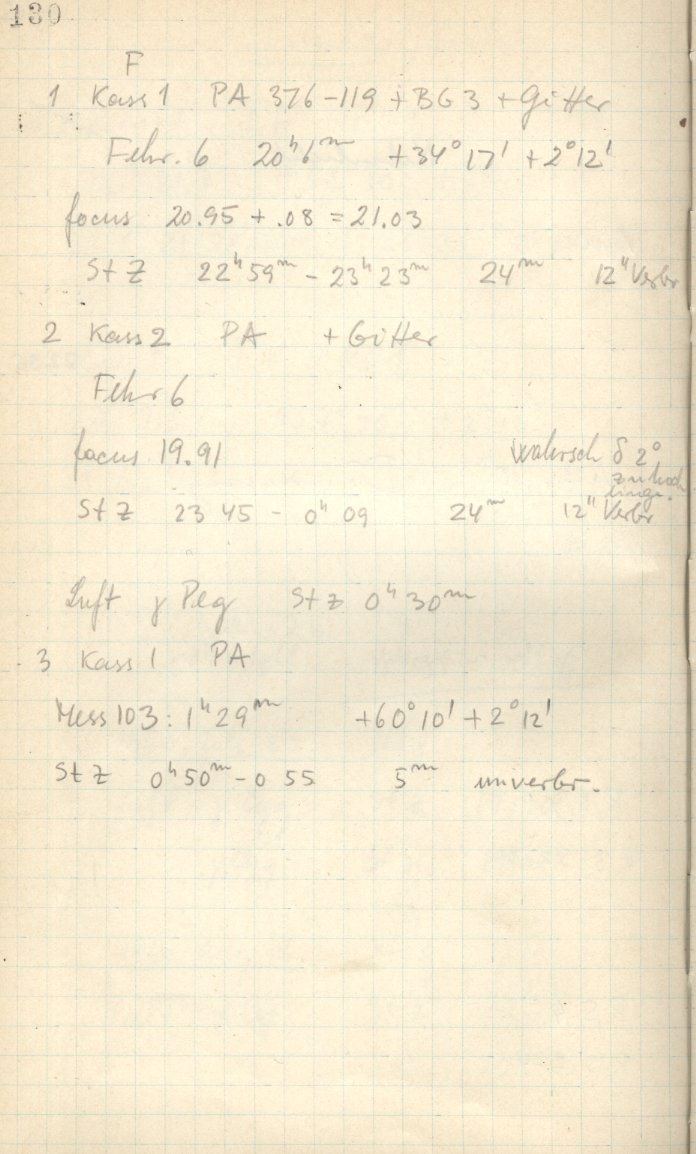 130
F
1 Kass 1 PA 376-119 + BG 3 + Gitter
Fehr. 6 20ʰ6ᵐ +34°17' +2°12'
focus 20.95 + .08 = 21.03
St Z 22ʰ59ᵐ - 23ʰ23ᵐ 24ᵐ 12" Verbr
2 Kass 2 PA + Gitter
Fehr 6
focus 19.91 wahrsch δ 2°
zu hoch
St Z 23 45 - 0ʰ 09 24ᵐ 12" Verbr
Luft γ Peg St Z 0ʰ 30ᵐ
3 Kass 1 PA
Mess 103: 1ʰ29ᵐ +60°10' +2°12'
St Z 0ʰ50ᵐ - 0 55 5ᵐ unverbr.